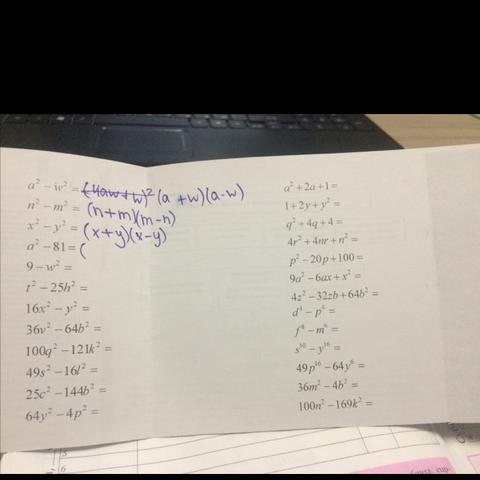 a² − w² = (4aw+w)² (a+w)(a-w)
n² − m² = (n+m)(m-n)
x² − y² = (x+y)(x-y)
a² − 81 = (
9 − w² =
t² − 25h² =
16x² − y² =
36v² − 64b² =
100q² − 121k² =
49s² − 16l² =
25c² − 144b² =
64y² − 4p² =
a² + 2a + 1 =
1 + 2y + y² =
q² + 4q + 4 =
4r² + 4nr + n² =
p² − 20p + 100 =
9a² − 6ax + x² =
4z² − 32zb + 64b² =
d⁴ − p⁴ =
f⁶ − m⁶ =
s¹⁰ − y¹⁶ =
49p¹⁶ − 64y⁶ =
36m² − 4b² =
100n² − 169k² =
5
6